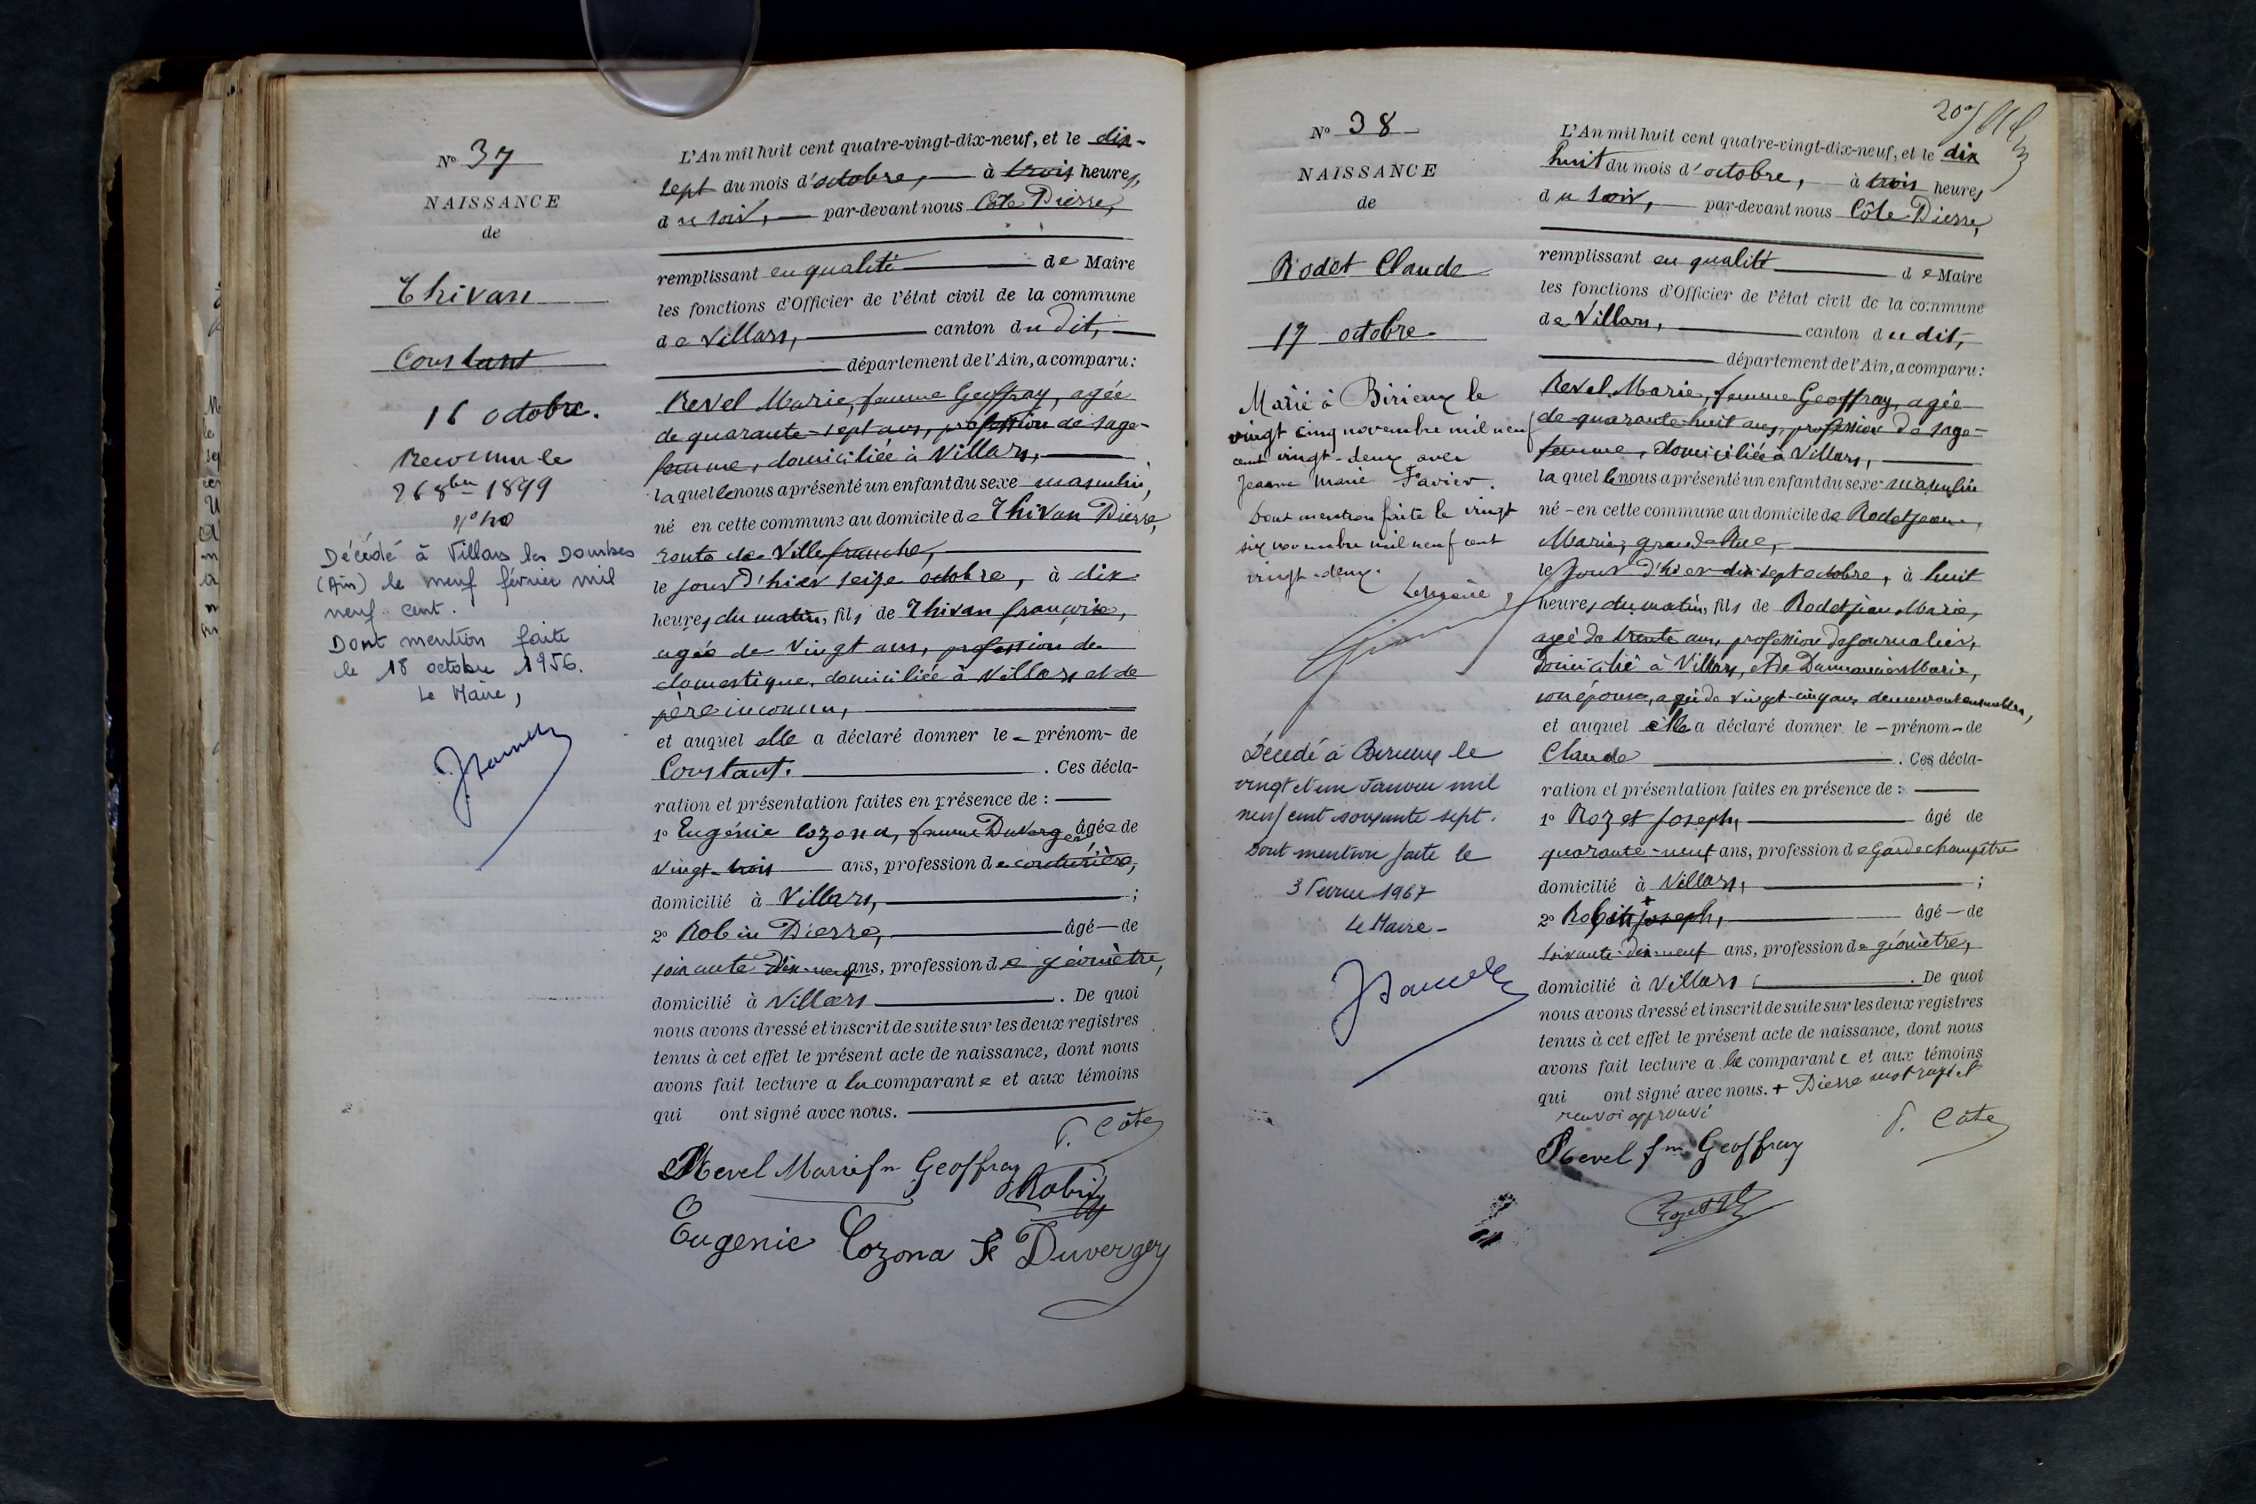 N° 37
NAISSANCE
de
Thivan
Constant
16 octobre.
Reconnu le
26 8bre 1899
n° 40
Décédé à Villars les Dombes
(Ain) le neuf février mil
neuf cent.
Dont mention faite
le 18 octobre 1956.
Le Maire,
L'An mil huit cent quatre-vingt-dix-neuf, et le dix-
sept du mois d'octobre, à trois heures,
du soir, par-devant nous Côte Pierre,
remplissant en qualité de Maire
les fonctions d'Officier de l'état civil de la commune
de Villars, canton du dit,
département de l'Ain, a comparu :
Revel Marie, femme Geoffray, agée
de quarante-sept ans, profession de sage-
femme, domiciliée à Villars,
laquelle nous a présenté un enfant du sexe masculin,
né en cette commune au domicile de Thivan Pierre,
route de Villefranche,
le jour d'hier seize octobre, à dix
heures du matin, fils de Thivan françoise,
agée de vingt ans, profession de
domestique, domiciliée à Villars et de
père inconnu,
et auquel elle a déclaré donner le - prénom - de
Constant. . Ces décla-
ration et présentation faites en présence de :
1° Eugénie Cozona, femme Duverger âgée de
vingt-trois ans, profession de couturière,
domicilié à Villars, ;
2° Robin Pierre, âgé - de
soixante-dix-neuf ans, profession de géomètre,
domicilié à Villars . De quoi
nous avons dressé et inscrit de suite sur les deux registres
tenus à cet effet le présent acte de naissance, dont nous
avons fait lecture a la comparante et aux témoins
qui ont signé avec nous.
P. Côte
Revel Marie fm Geoffray
Robin
Eugenie Cozona fe Duverger
N° 38
NAISSANCE
de
Rodet Claude
17 octobre
Marié à Birieux le
vingt cinq novembre mil neuf
cent vingt-deux avec
Jeanne Marie Favier.
Dont mention faite le vingt
six novembre mil neuf cent
vingt-deux.
Le Maire,
Décédé à Birieux le
vingt et un Janvier mil
neuf cent soixante sept.
Dont mention faite le
3 Février 1967
Le Maire -
L'An mil huit cent quatre-vingt-dix-neuf, et le dix
huit du mois d'octobre, à trois heures
du soir, par-devant nous Côte Pierre,
remplissant en qualité de Maire
les fonctions d'Officier de l'état civil de la commune
de Villars, canton du dit,
département de l'Ain, a comparu :
Revel Marie, femme Geoffray, agée
de quarante-huit ans, profession de sage-
femme, domiciliée à Villars,
laquelle nous a présenté un enfant du sexe masculin
né - en cette commune au domicile de Rodet jean,
Marie, grande Rue,
le jour d'hier dix-sept octobre, à huit
heures du matin, fils de Rodet jean Marie,
agé de trente ans, profession de journalier,
domicilié à Villars, et de Marie,
son épouse, agée de vingt-cinq ans demeurant ensemble,
et auquel elle a déclaré donner le - prénom - de
Claude . Ces décla-
ration et présentation faites en présence de :
1° Rozet Joseph, âgé de
quarante-neuf ans, profession de Garde champêtre
domicilié à Villars, ;
2° Robin + joseph, âgé - de
soixante-dix-neuf ans, profession de géomètre,
domicilié à Villars . De quoi
nous avons dressé et inscrit de suite sur les deux registres
tenus à cet effet le présent acte de naissance, dont nous
avons fait lecture a la comparante et aux témoins
qui ont signé avec nous. + Pierre mot rayé et
renvoi approuvé
P. Côte
Revel fm Geoffray
Rozet